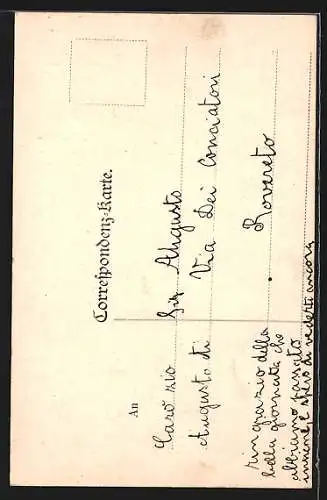 Correspondenz-Karte.
An
Caro zio
Sig Augusto
Augusto di
Via Dei Conciatori
Rovereto
ringrazio della
bella giornata che
abbiamo passato
insieme, e spero di vederti ancora